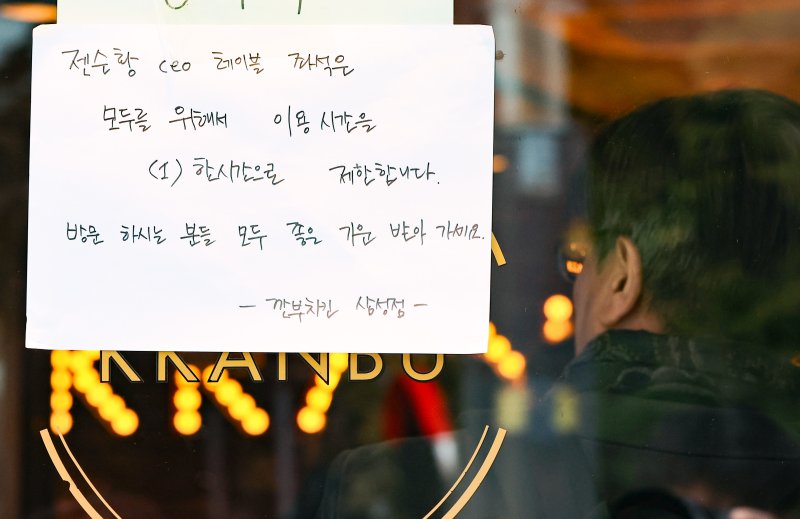 젠슨황 ceo 테이블 좌석은
모두를 위해서 이용 시간을
(1) 한시간으로 제한합니다.
방문 하시는 분들 모두 좋은 기운 받아 가세요.
- 깐부치킨 삼성점 -
KKANBU